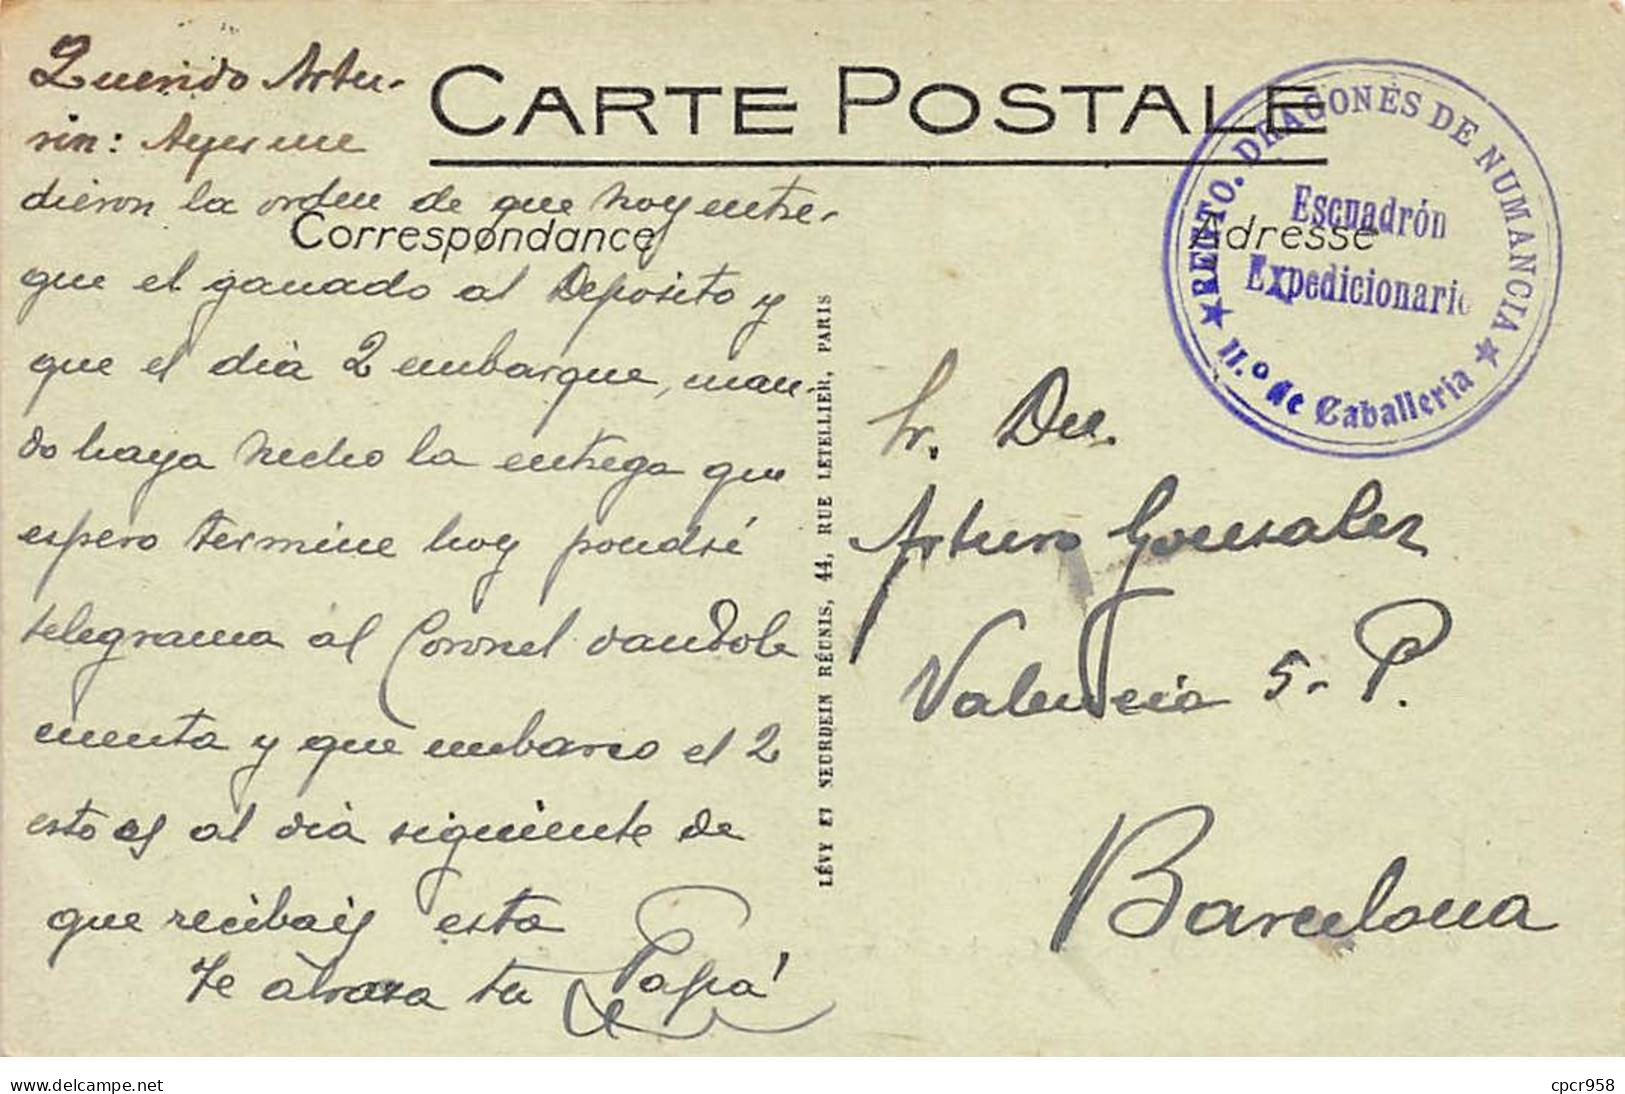 CARTE POSTALE
Correspondance
Adresse
Querido Artu-
rin: Ayer me
dieron la orden de que hoy entre-
gue el ganado al Deposito y
que el dia 2 embarque, man-
do haya hecho la entrega que
espero termine hoy pondré
telegrama al Coronel dandole
cuenta y que embarco el 2
esto es al dia siguiente de
que recibais esta
Te abraza tu Papá
LÉVY ET NEURDEIN RÉUNIS, 44, RUE LETELLIER, PARIS
REGTO. DRAGONES DE NUMANCIA
Escuadrón
Expedicionario
★ 11.º de Caballeria ★
Sr. Dn.
Arturo Gonsalez
Valencia 5- P.
Barcelona
www.delcampe.net
cpcr958